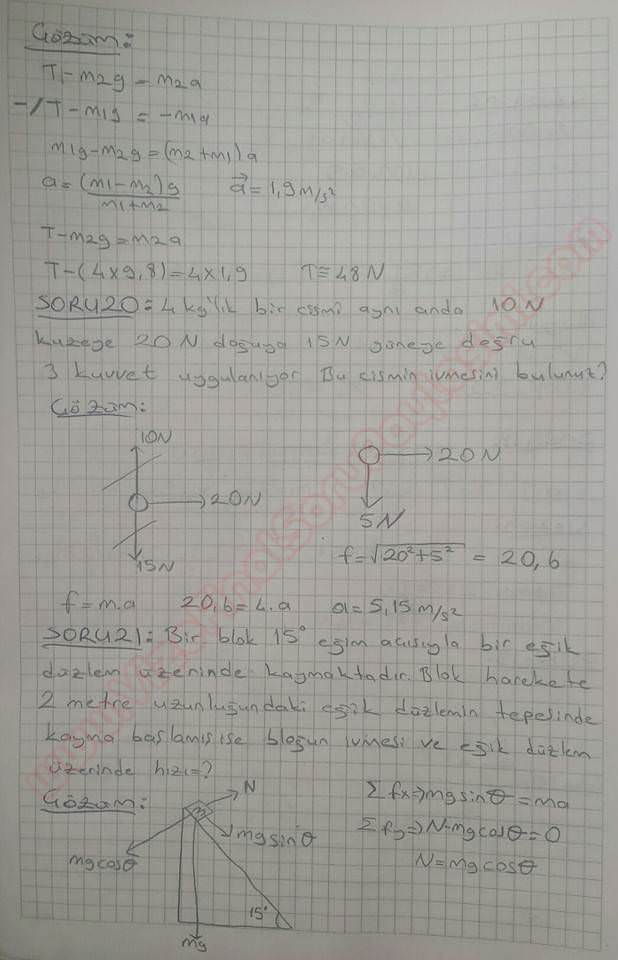 Çözüm:
T-m2g = m2a
-/T-m1g = -m1a
m1g-m2g = (m2+m1)a
a = (m1-m2)g / m1+m2   a⃗ = 1,9 m/s²
T-m2g = m2a
T-(4x9,8) = 4x1,9   T≅48N
SORU20: 4 kg'lık bir cismi aynı anda 10N
kuzeye 20N doğuya 15N güneye doğru
3 kuvvet uygulanıyor Bu cismin ivmesini bulunuz?
Çözüm:
10N
20N
15N
20N
5N
f=√20²+5² = 20,6
f=m.a   20,6=4.a   a=5,15m/s²
SORU21: Bir blok 15° eğim açısıyla bir eğik
düzlem üzerinde kaymaktadır. Blok harekete
2 metre uzunluğundaki eğik düzlemin tepesinde
kayma başlamış ise bloğun ivmesi ve eğik düzlem
üzerinde hızı=?
Çözüm:
N
mgsinθ
mgcosθ
15°
mg
Σfx=>mgsinθ=ma
Σfy=>N-mgcosθ=0
N=mgcosθ